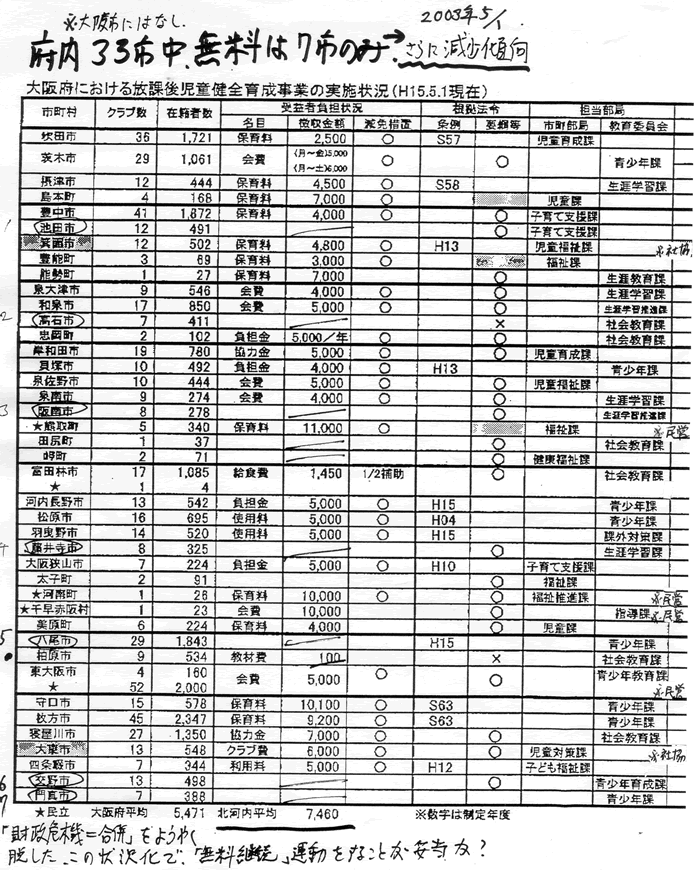 ※大阪市にはなし. 2003年5/1
府内33市中、無料は7市のみ→さらに減少傾向
大阪府における放課後児童健全育成事業の実施状況(H15.5.1現在)
市町村 クラブ数 在籍者数 受益者負担状況 根拠法令 担当部局
名目 徴収金額 減免措置 条例 要綱等 市町部局 教育委員会
吹田市 36 1,721 保育料 2,500 ○ S57 児童育成課
茨木市 29 1,061 会費 (月〜金)5,000 (月〜土)6,000 ○ ○ 青少年課
摂津市 12 444 保育料 4,500 ○ S58 生涯学習課
島本町 4 168 保育料 7,000 ○ 児童課
豊中市 41 1,872 保育料 4,000 ○ ○ 子育て支援課
1 池田市 12 491 ○ 子育て支援課
箕面市 12 502 保育料 4,800 ○ H13 児童福祉課 ※社協
豊能町 3 69 保育料 3,000 ○ 福祉課
能勢町 1 27 保育料 7,000 ○ 生涯教育課
泉大津市 9 546 会費 4,000 ○ ○ 生涯学習課
和泉市 17 850 会費 5,000 ○ ○ 生涯学習推進課
2 高石市 7 411 × 社会教育課
忠岡町 2 102 負担金 5,000/年 ○ ○ 社会教育課
岸和田市 19 780 協力金 5,000 ○ ○ 児童育成課
貝塚市 10 492 負担金 4,000 ○ H13 青少年課
泉佐野市 10 444 会費 5,000 ○ ○ 児童福祉課
泉南市 9 274 会費 4,000 ○ ○ 生涯学習課
3 阪南市 8 278 ○ 生涯学習推進課
★熊取町 5 340 保育料 11,000 ○ 福祉課 ※民営
田尻町 1 37 ○ 社会教育課
岬町 2 71 ○ 健康福祉課
富田林市 17 1,085 給食費 1,450 1/2補助 ○ 社会教育課
★ 1 4
河内長野市 13 542 負担金 5,000 ○ H15 青少年課
松原市 16 695 使用料 5,000 ○ H04 青少年課
羽曳野市 14 520 使用料 5,000 ○ H15 課外対策課
4 藤井寺市 8 325 ○ 生涯学習課
大阪狭山市 7 224 負担金 5,000 ○ H10 子育て支援課
太子町 2 91 ○ 福祉課
★河南町 1 26 保育料 10,000 ○ ○ 福祉推進課 ※民営
★千早赤阪村 1 23 会費 10,000 ○ 指導課 ※民営
美原町 6 224 保育料 4,000 ○ ○ 児童課
5 八尾市 29 1,843 H15 青少年課
柏原市 9 534 教材費 100 × 社会教育課
東大阪市 4 160 会費 5,000 ○ ○ 青少年教育課
★ 52 2,000 ※民営
守口市 15 578 保育料 10,100 ○ S63 青少年課
枚方市 45 2,347 保育料 9,200 ○ S63 青少年課
寝屋川市 27 1,350 協力金 7,000 ○ ○ 社会教育課
大東市 13 548 クラブ費 6,000 ○ ○ 児童対策課 ※社協
四条畷市 7 344 利用料 5,000 ○ H12 子ども福祉課
6 交野市 13 498 ○ 青少年育成課
7 門真市 7 388 青少年課
★民立 大阪府平均 5,471 北河内平均 7,460 ※数字は制定年度
「財政危機=合併」をようやく
脱した、この状況化で、「無料継続」運動をすることが妥当か?